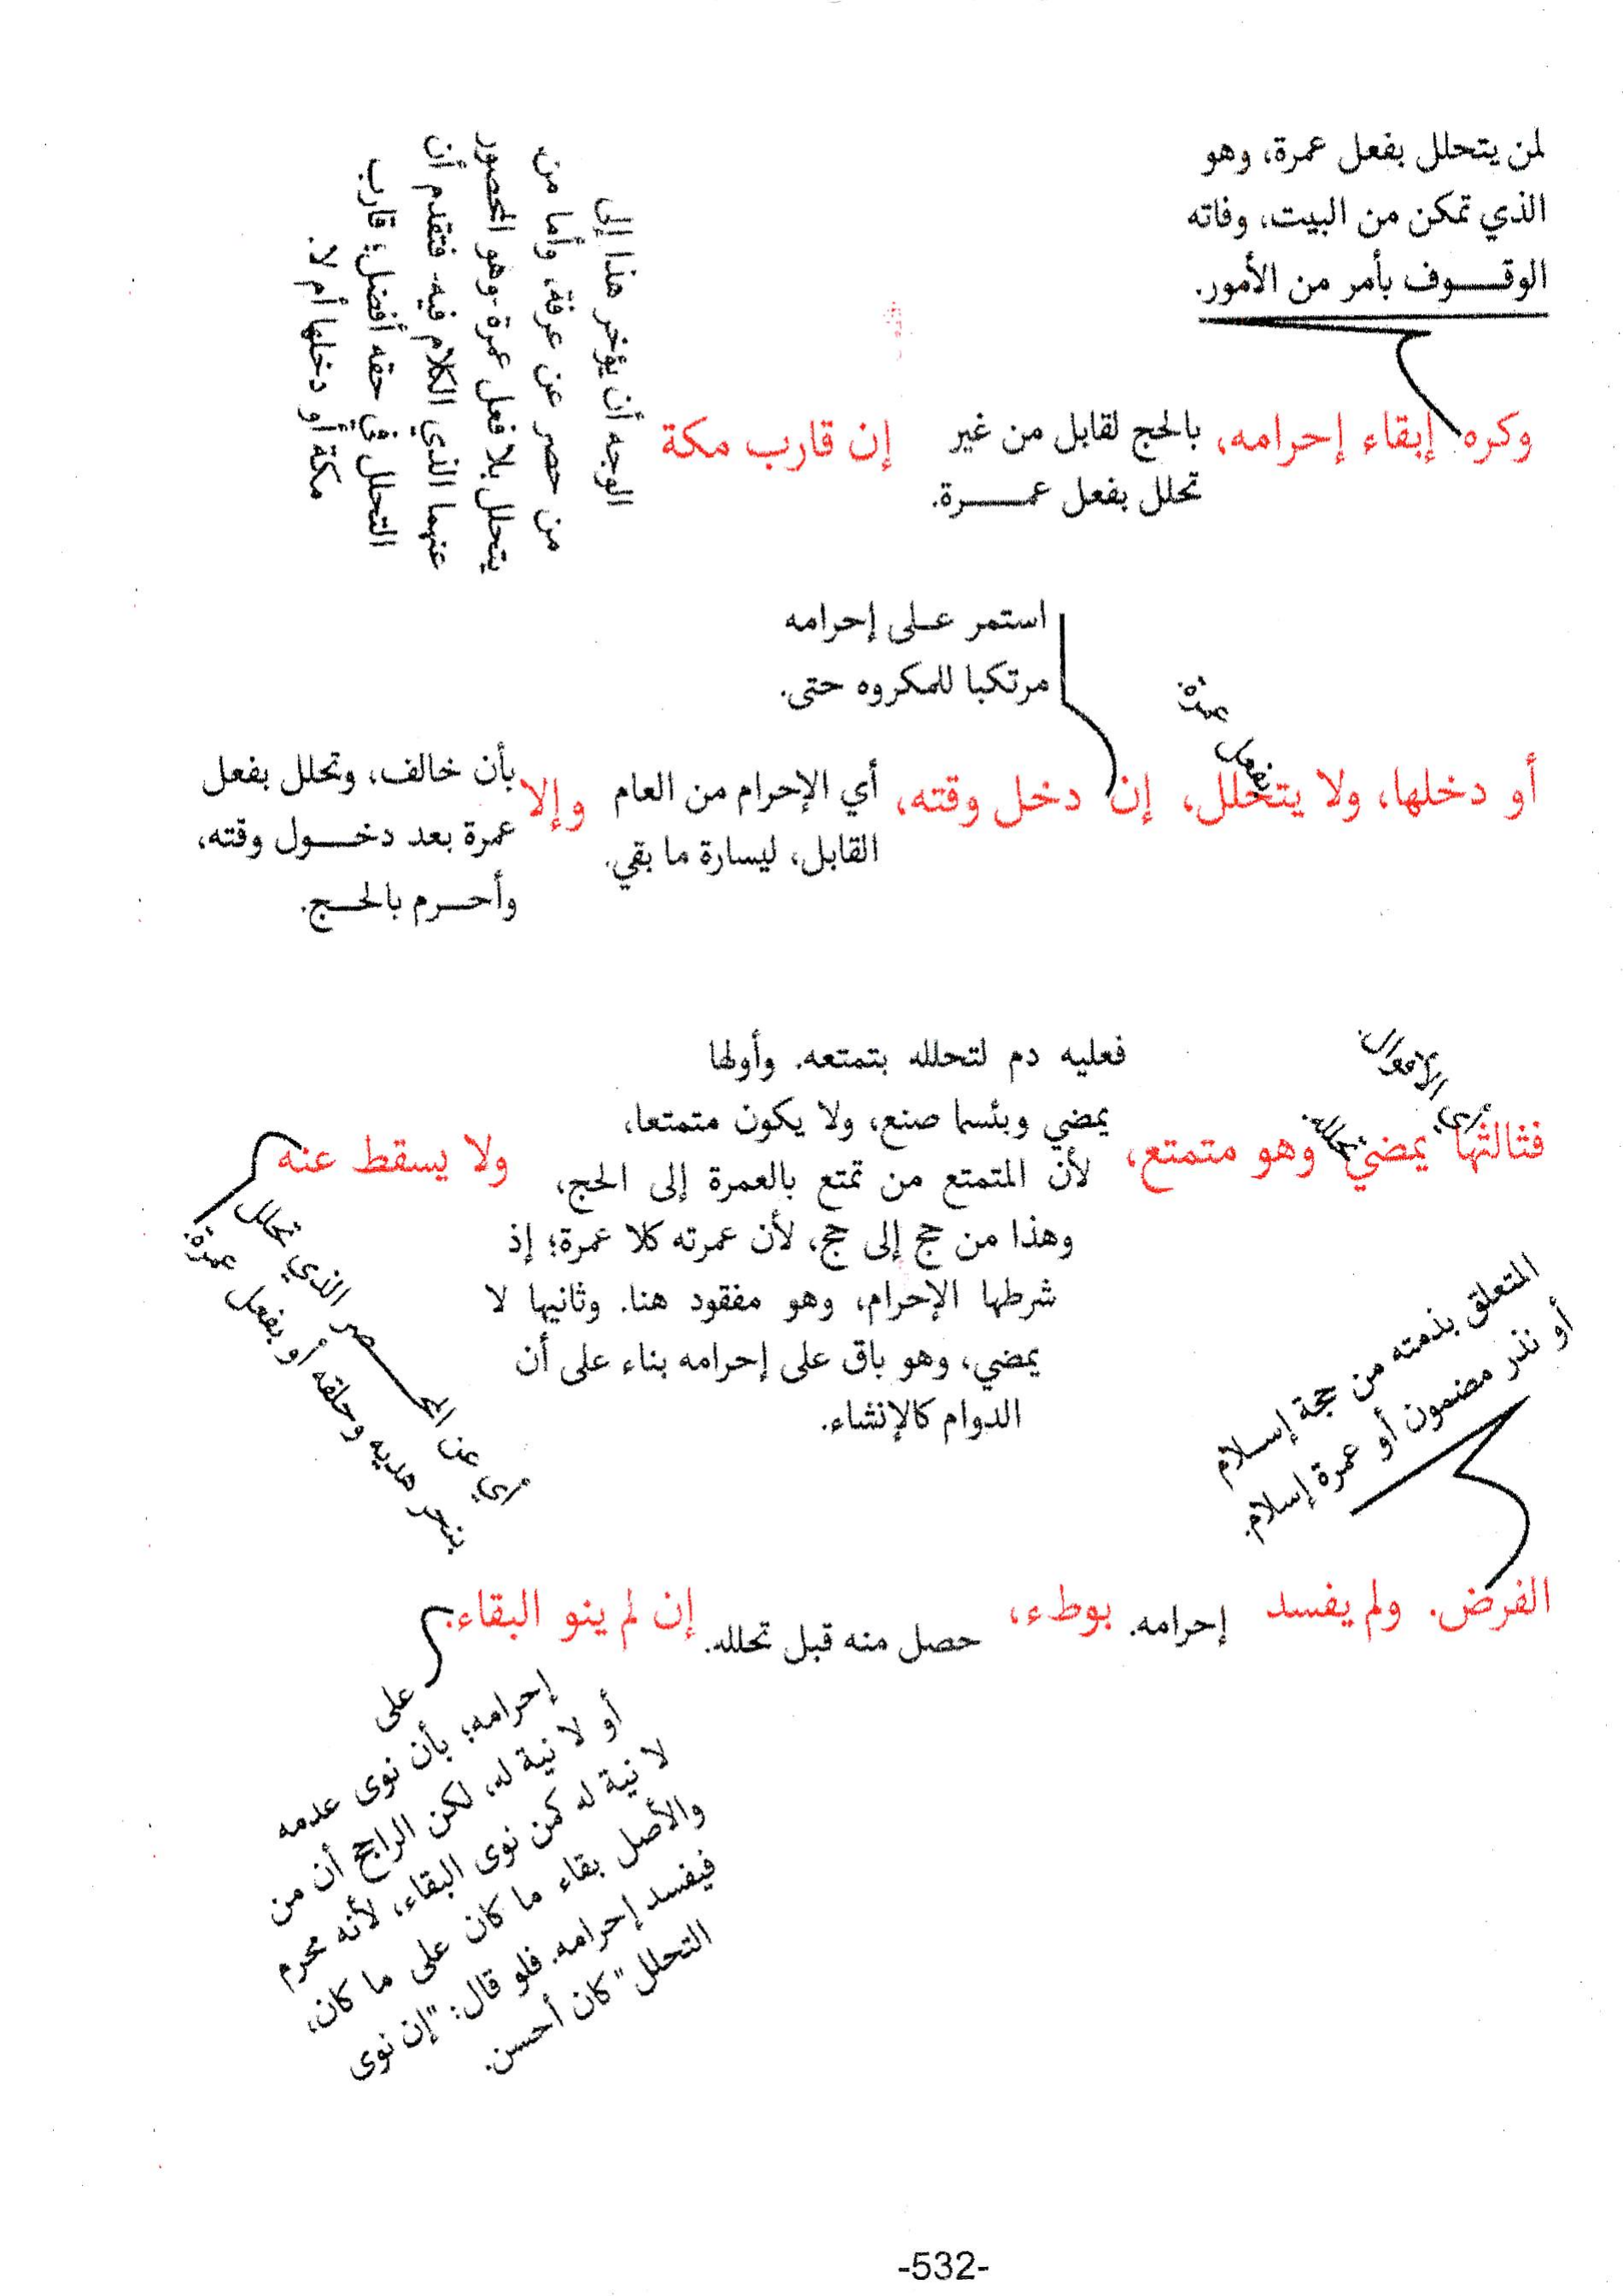 لمن يتحلل بفعل عمرة، وهو
الذي تمكن من البيت، وفاته
الوقوف بأمر من الأمور.
وكره إبقاء إحرامه،
بالحج لقابل من غير
تحلل بفعل عمرة.
إن قارب مكة
الوجه أن يؤخر هذا إلى
من حصر عن عرفة، وأما من
يتحلل بلا فعل عمرة -وهو المحصور
عنهما الذي الكلام فيه- فتقدم أن
التحلل في حقه أفضل؛ قارب
مكة أو دخلها أم لا.
أو دخلها، ولا يتحلل،
بفعل عمرة.
استمر على إحرامه
مرتكبا للمكروه حتى.
إن دخل وقته،
أي الإحرام من العام
القابل، ليسارة ما بقي.
وإلا
بأن خالف، وتحلل بفعل
عمرة بعد دخول وقته،
وأحرم بالحج.
فثالثها
أي الأقوال.
يمضي
تحلله.
وهو متمتع،
فعليه دم لتحلله بتمتعه. وأولها
يمضي وبئسما صنع، ولا يكون متمتعا،
لأن المتمتع من تمتع بالعمرة إلى الحج،
وهذا من حج إلى حج، لأن عمرته كلا عمرة؛ إذ
شرطها الإحرام، وهو مفقود هنا. وثانيها لا
يمضي، وهو باق على إحرامه بناء على أن
الدوام كالإنشاء.
ولا يسقط عنه
أي عن المحصر الذي تحلل
بنحر هديه وحلقه أو بفعل عمرة.
المتعلق بذمته من حجة إسلام
أو نذر مضمون أو عمرة إسلام.
الفرض. ولم يفسد
إحرامه.
بوطء،
حصل منه قبل تحلله.
إن لم ينو البقاء.
على
إحرامه؛ بأن نوى عدمه
أو لا نية له، لكن الراجح أن من
لا نية له كمن نوى البقاء، لأنه محرم
والأصل بقاء ما كان على ما كان،
فيفسد إحرامه. فلو قال: "إن نوى
التحلل" كان أحسن.
-532-